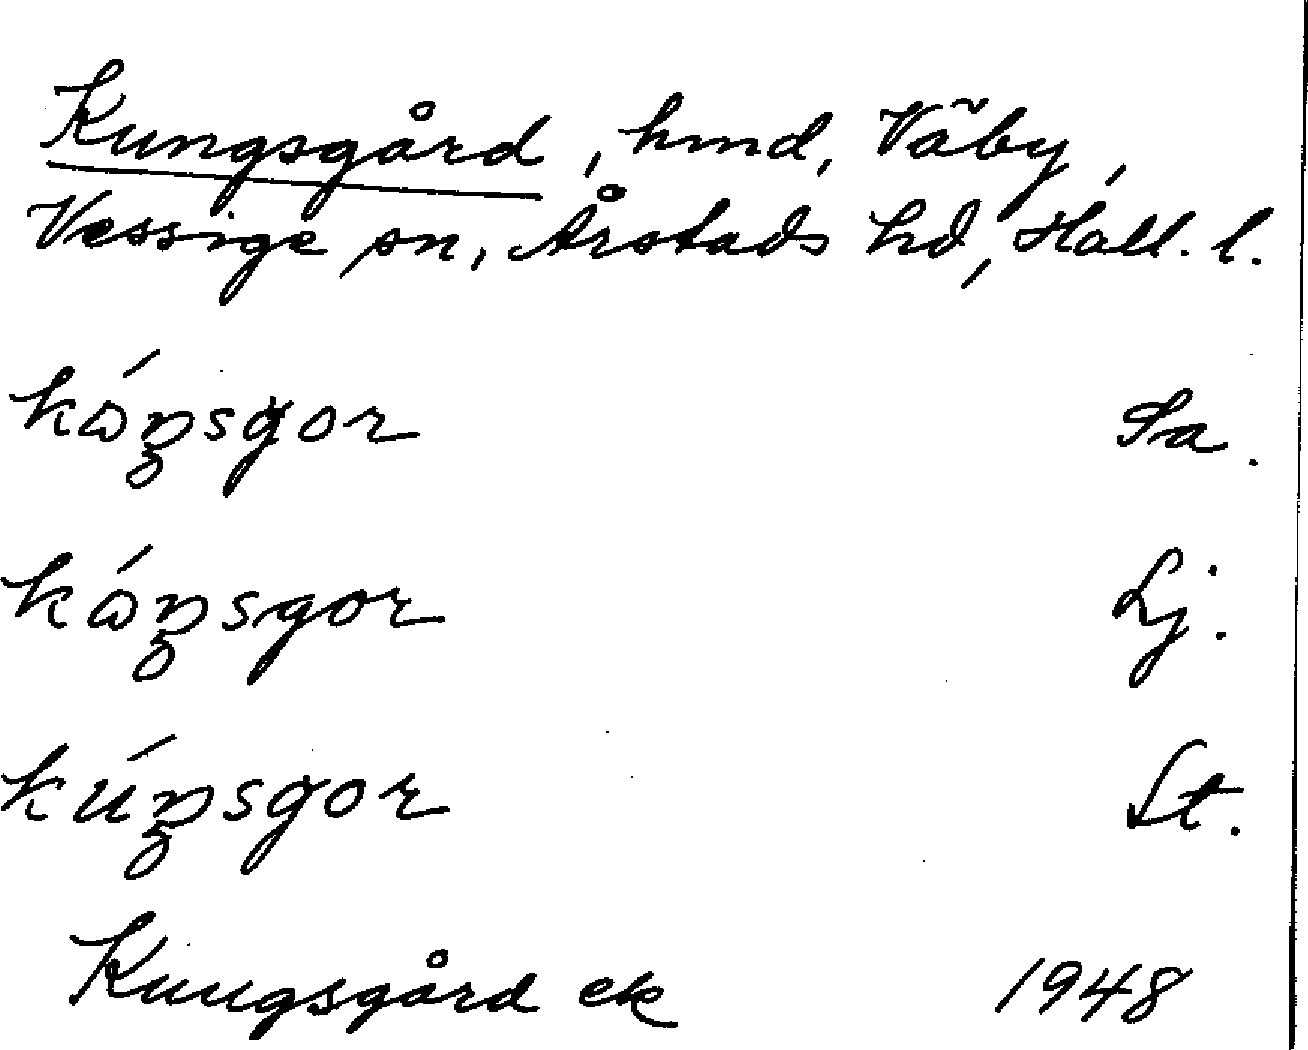 Kungsgård, hmd, Väby,
Vessige sn, Årstads hd, Hall. l.
kɷ́ŋsgor Sa.
kɷ́ŋsgor Lj.
kúŋsgor St.
Kungsgård ek 1948